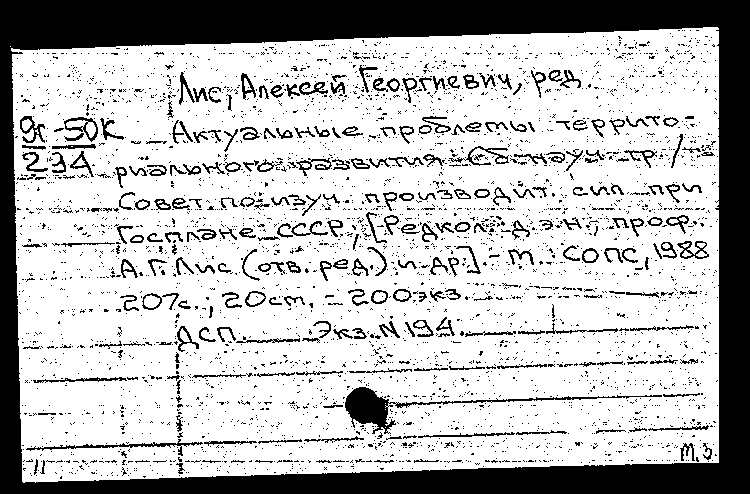 Лис, Алексей Георгиевич, ред.
Яг-50К
234
Актуальные проблемы террито-
риального развития: Сб. науч. тр. /
Совет по изуч. производит. сил при
Госплане СССР; [Редкол.: д.э.н., проф.
А.Г. Лис (отв. ред.) и др.]. - М.: СОПС, 1988
207с.; 20см. - 200экз.
ДСП. Экз. N 194.
11